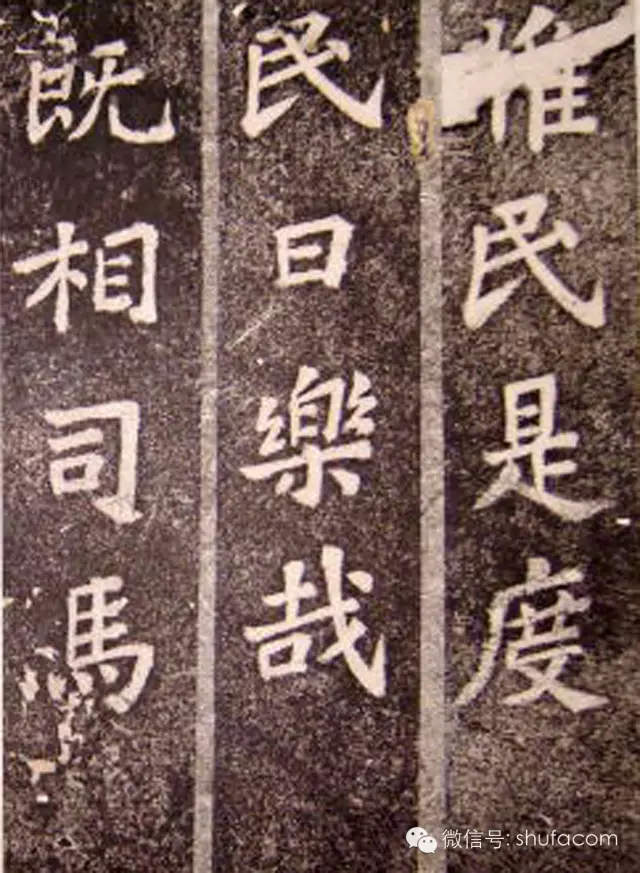 惟民是度
民曰樂哉
既相司馬
微信号: shufacom